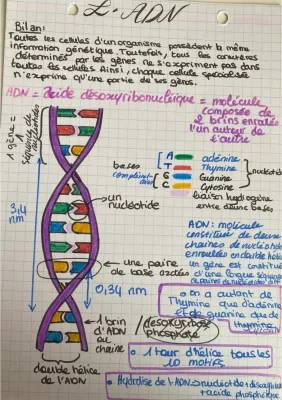 L'ADN
Bilan:
Toutes les cellules d'un organisme possèdent la même
information génétique. Toutefois, tous les caractères
déterminés par les gènes ne s'expriment pas dans
toutes les cellules. Ainsi, chaque cellule spécialisée
n'exprime qu'une partie de ses gènes.
ADN = acide désoxyribonucléique = molécule
composée de
2 brins enroulés
l'un autour de
l'autre
1 gène =
1 séquence de
nucléotides
bases
A adénine
T Thymine
G Guanine
C Cytosine
liaison hydrogène
entre deux bases
un
nucléotide
3,4
nm
une paire
de base azotées
0,34 nm
1 brin
d'ADN
ou
chaîne
désoxyribose
phosphate
double hélice
de l'ADN
ADN: molécule
constituée de deux
chaînes de nucléotides
enroulées en double hélice
un gène est constitué
d'une
on a autant de
Thymine que d'adénine
et de guanine que de
thymine
1 tour d'hélice tous les
10 motifs
Hydrolise de l'ADN → nucléotide → désoxyribose
+ acide phosphorique